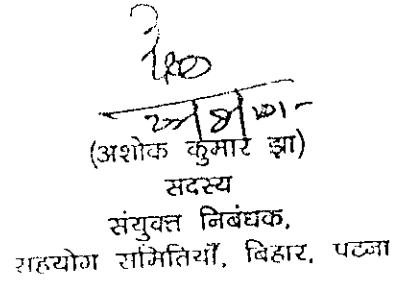 (अशोक कुमार झा)
सदस्य
संयुक्त निबंधक,
सहयोग समितियाँ, बिहार, पटना